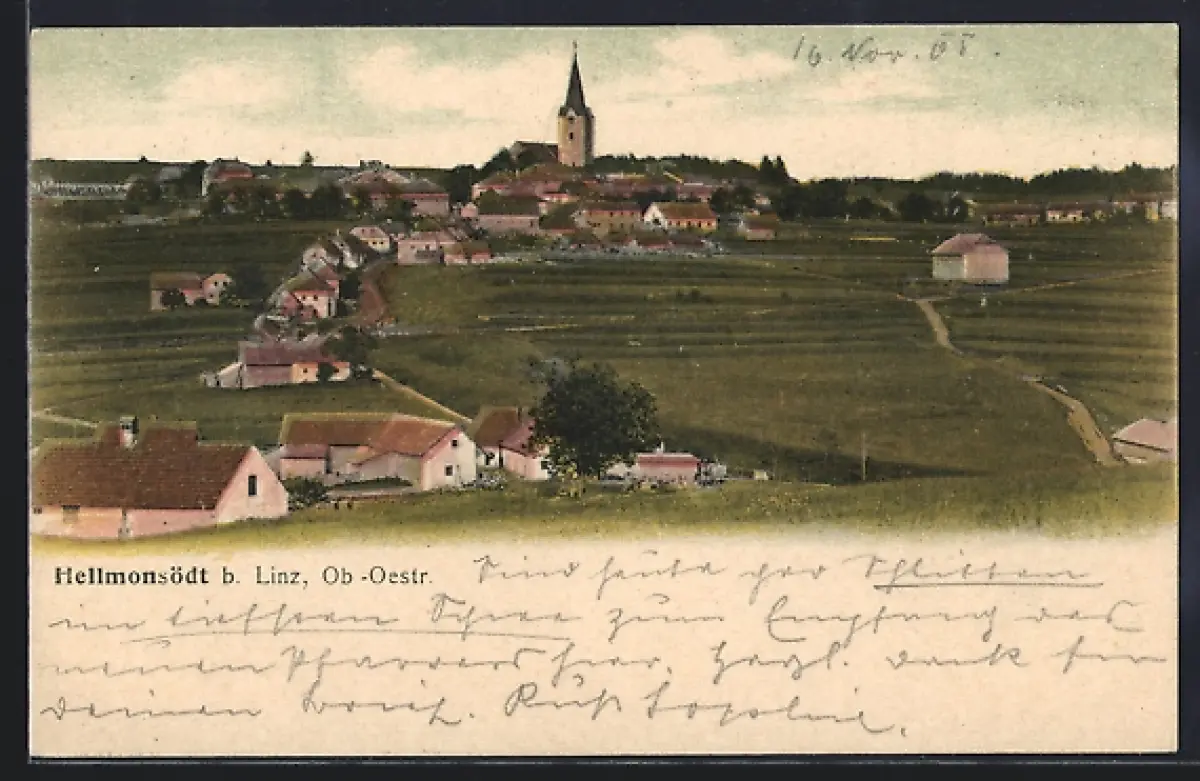 16. Nov. 08.
Hellmonsödt b. Linz, Ob.-Oestr. Sind heute per Schlitten
im tiefsten Schnee zum Empfang des
neuen Pfarrers hier. Herzl. Dank für
Deinen Brief. Kuß